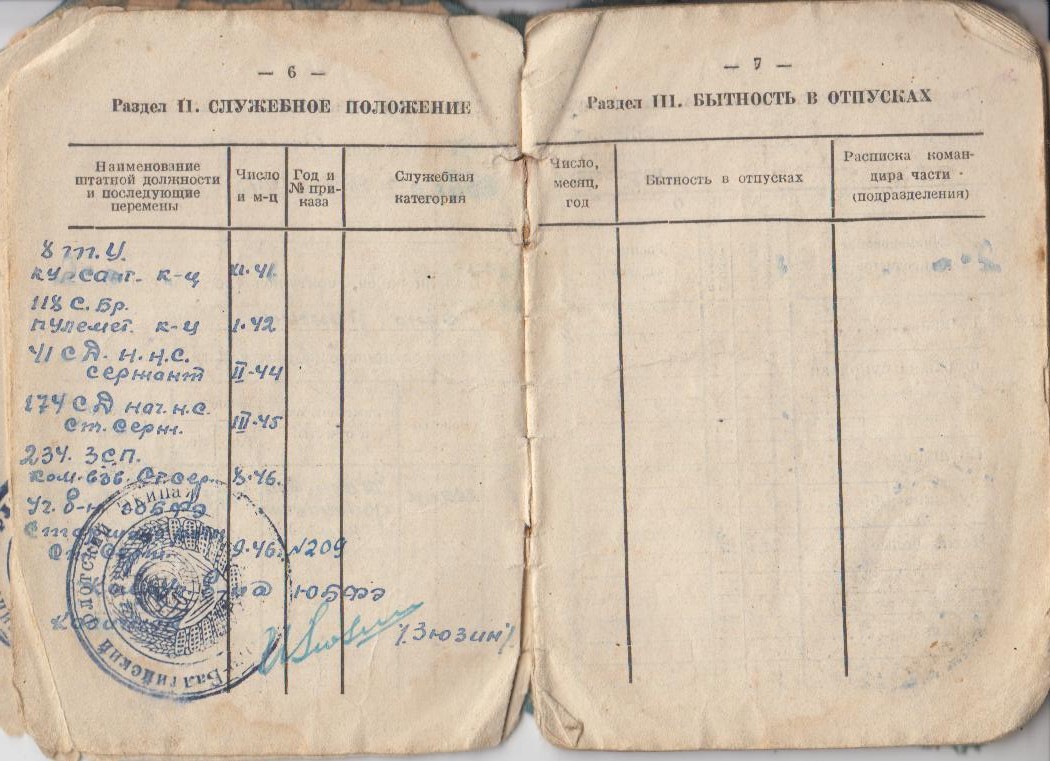 — 6 —
Раздел II. СЛУЖЕБНОЕ ПОЛОЖЕНИЕ
Наименование
штатной должности
и последующие
перемены
Число
и м-ц
Год и
№ при-
каза
Служебная
категория
У т.У.
курсант. к-ц XI.41.
118 С. Бр.
пулемет. к-ц 1.42
41 СД. Н.Н.С.
сержант II-44
174 СД нач.н.С.
Ст. Серж. III-45
234. ЗСП.
Ком. взв. Ст.сер. 8.46.
Уч. б-н ЮБФЭ
9.46. №209
ЮБФЭ
/Зюзин/
Балтийский
— 7 —
Раздел III. БЫТНОСТЬ В ОТПУСКАХ
Число,
месяц,
год
Бытность в отпусках
Расписка коман-
дира части
(подразделения)